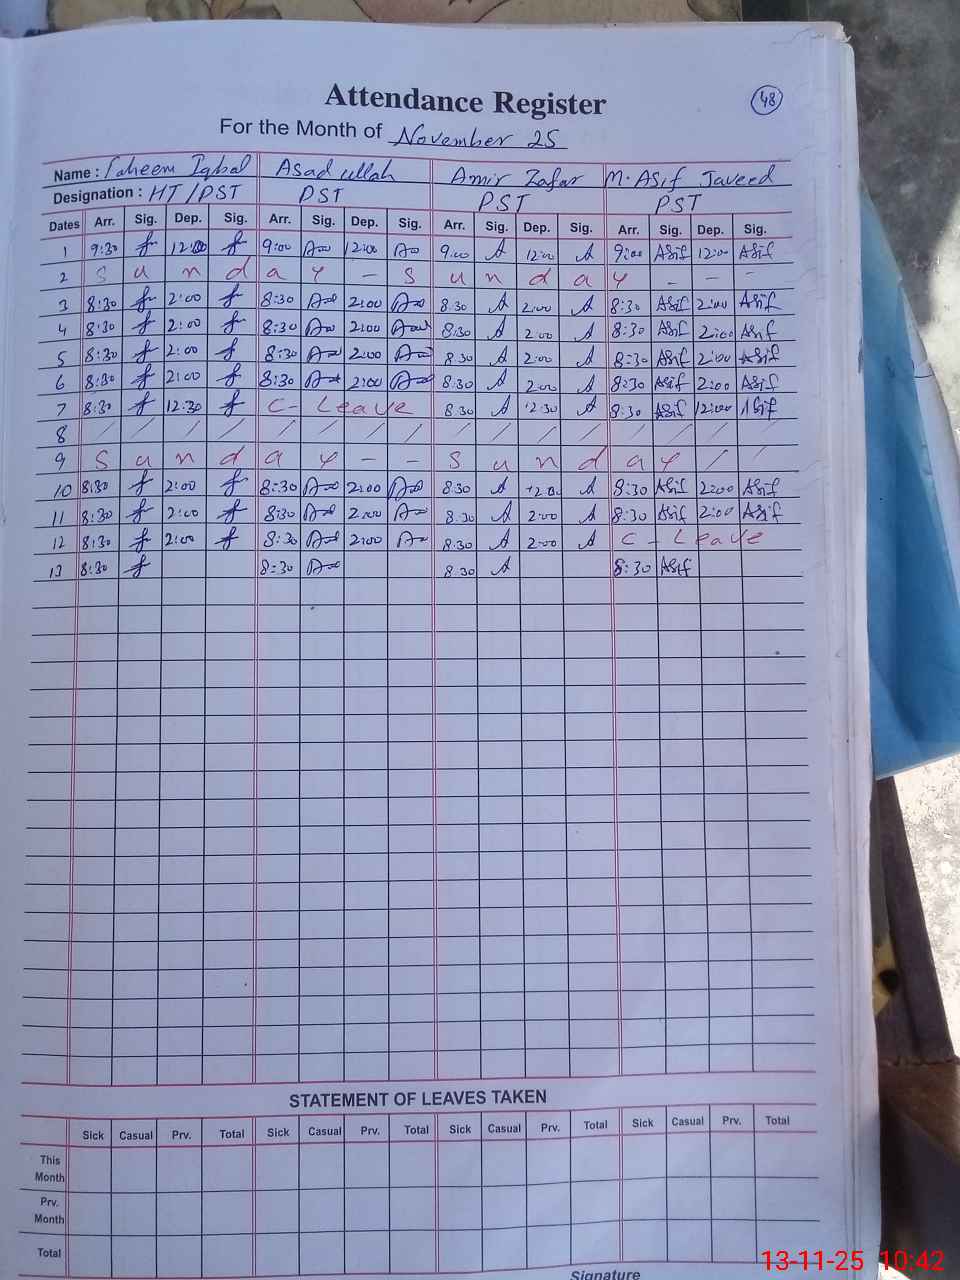 Attendance Register
48
For the Month of November 25
Name : Faheem Iqbal Asad ullah Amir Zafar M. Asif Javeed
Designation : HT/PST PST PST PST
Dates Arr. Sig. Dep. Sig. Arr. Sig. Dep. Sig. Arr. Sig. Dep. Sig. Arr. Sig. Dep. Sig.
1 9:30 12:00 9:00 12:00 9:00 A 12:00 A 9:00 Asif 12:00 Asif
2 S u n d a y - S u n d a y - - -
3 8:30 2:00 8:30 2:00 8:30 A 2:00 A 8:30 Asif 2:00 Asif
4 8:30 2:00 8:30 2:00 8:30 A 2:00 A 8:30 Asif 2:00 Asif
5 8:30 2:00 8:30 2:00 8:30 A 2:00 A 8:30 Asif 2:00 Asif
6 8:30 2:00 8:30 2:00 8:30 A 2:00 A 8:30 Asif 2:00 Asif
7 8:30 12:30 C - Leave 8:30 A 12:30 A 8:30 Asif 12:00 Asif
8 / / / / / / / / / / / / / / /
9 S u n d a y - - S u n d a y / /
10 8:30 2:00 8:30 2:00 8:30 A 2:00 A 8:30 Asif 2:00 Asif
11 8:30 2:00 8:30 2:00 8:30 A 2:00 A 8:30 Asif 2:00 Asif
12 8:30 2:00 8:30 2:00 8:30 A 2:00 A C - Leave
13 8:30 8:30 8:30 A 8:30 Asif
STATEMENT OF LEAVES TAKEN
Sick Casual Prv. Total Sick Casual Prv. Total Sick Casual Prv. Total Sick Casual Prv. Total
This
Month
Prv.
Month
Total
Signature
13-11-25 10:42